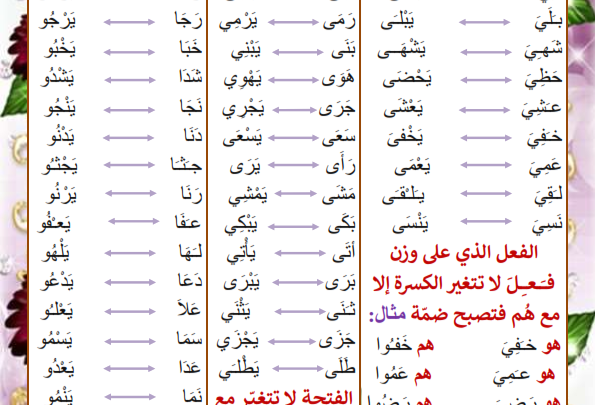 بَلَيَ يَبْلَى
شَهِيَ يَشْهَى
حَظِيَ يَحْضَى
عَشِيَ يَعْشَى
خَفِيَ يَخْفىَ
عَمِيَ يَعْمَى
لَقِيَ يَلْقَى
نَسِيَ يَنْسَى
الفعل الذي على وزن
فَعِلَ لا تتغير الكسرة إلا
مع هُم فتصبح ضمّة مثال:
هو خَفِيَ هم خَفُوا
هو عَمِيَ هم عَمُوا
رَمَى يَرْمِي
بَنَى يَبْنِي
هَوَى يَهْوِي
جَرَى يَجْرِي
سَعَى يَسْعَى
رَأَى يَرَى
مَشَى يَمْشِي
بَكَى يَبْكِي
أتَى يَأْتِي
بَرَى يَبْرَى
ثَنَى يَثْنَي
جَزَى يَجْزَي
طَلَى يَطْلَي
الفتحة لا تتغيّر مع
رَجَا يَرْجُو
خَبَا يَخْبُو
شَدَا يَشْدُو
نَجَا يَنْجُو
دَنَا يَدْنُو
جَثَا يَجْثُو
رَنَا يَرْنُو
عَفَا يَعفُو
لَهَا يَلْهُو
دَعَا يَدْعُو
عَلاَ يَعْلُو
سَمَا يَسْمُو
عَدَا يَعْدُو
نَمَا يَنْمُو